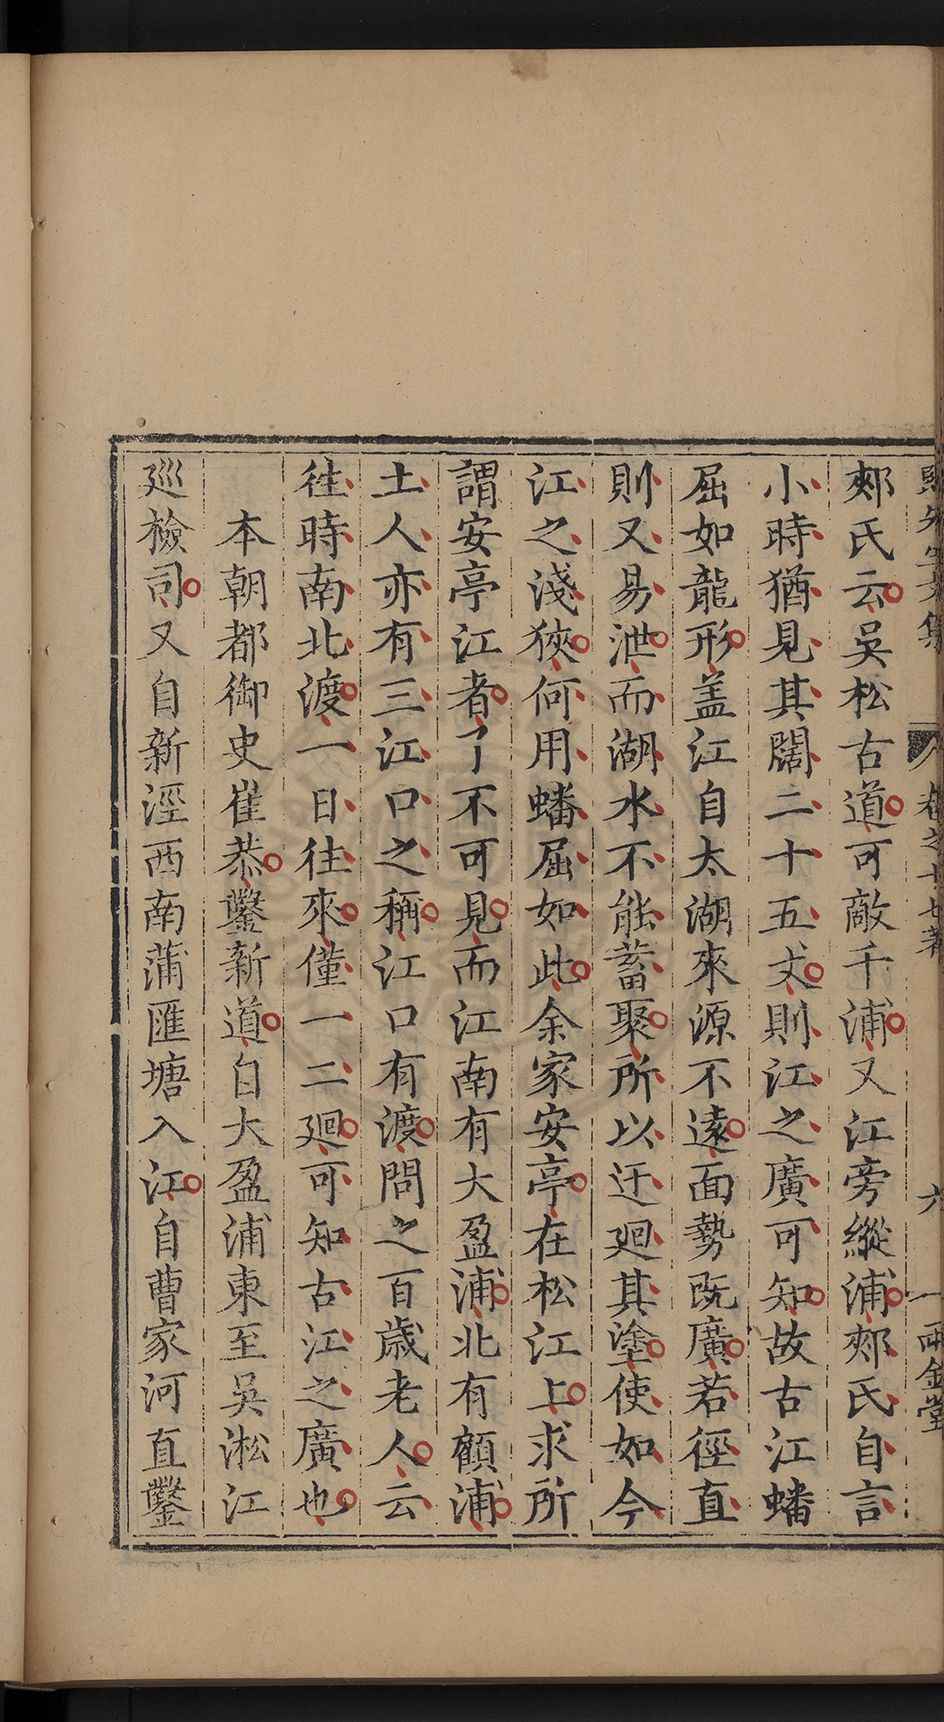 郟氏云吳松古道可敵千浦又江旁縱浦郟氏自言
小時猶見其闊二十五丈則江之廣可知故古江蟠
屈如龍形盖江自太湖來源不遠面勢既廣若徑直
則又易泄而湖水不能蓄聚所以迂廻其塗使如今
江之淺狹何用蟠屈如此余家安亭在松江上求所
謂安亭江者了不可見而江南有大盈浦北有顧浦
土人亦有三江口之稱江口有渡問之百歲老人云
徃時南北渡一日往來僅一二廻可知古江之廣也
本朝都御史崔恭鑿新道自大盈浦東至吳淞江
巡檢司又自新涇西南蒲匯塘入江自曹家河直鑿